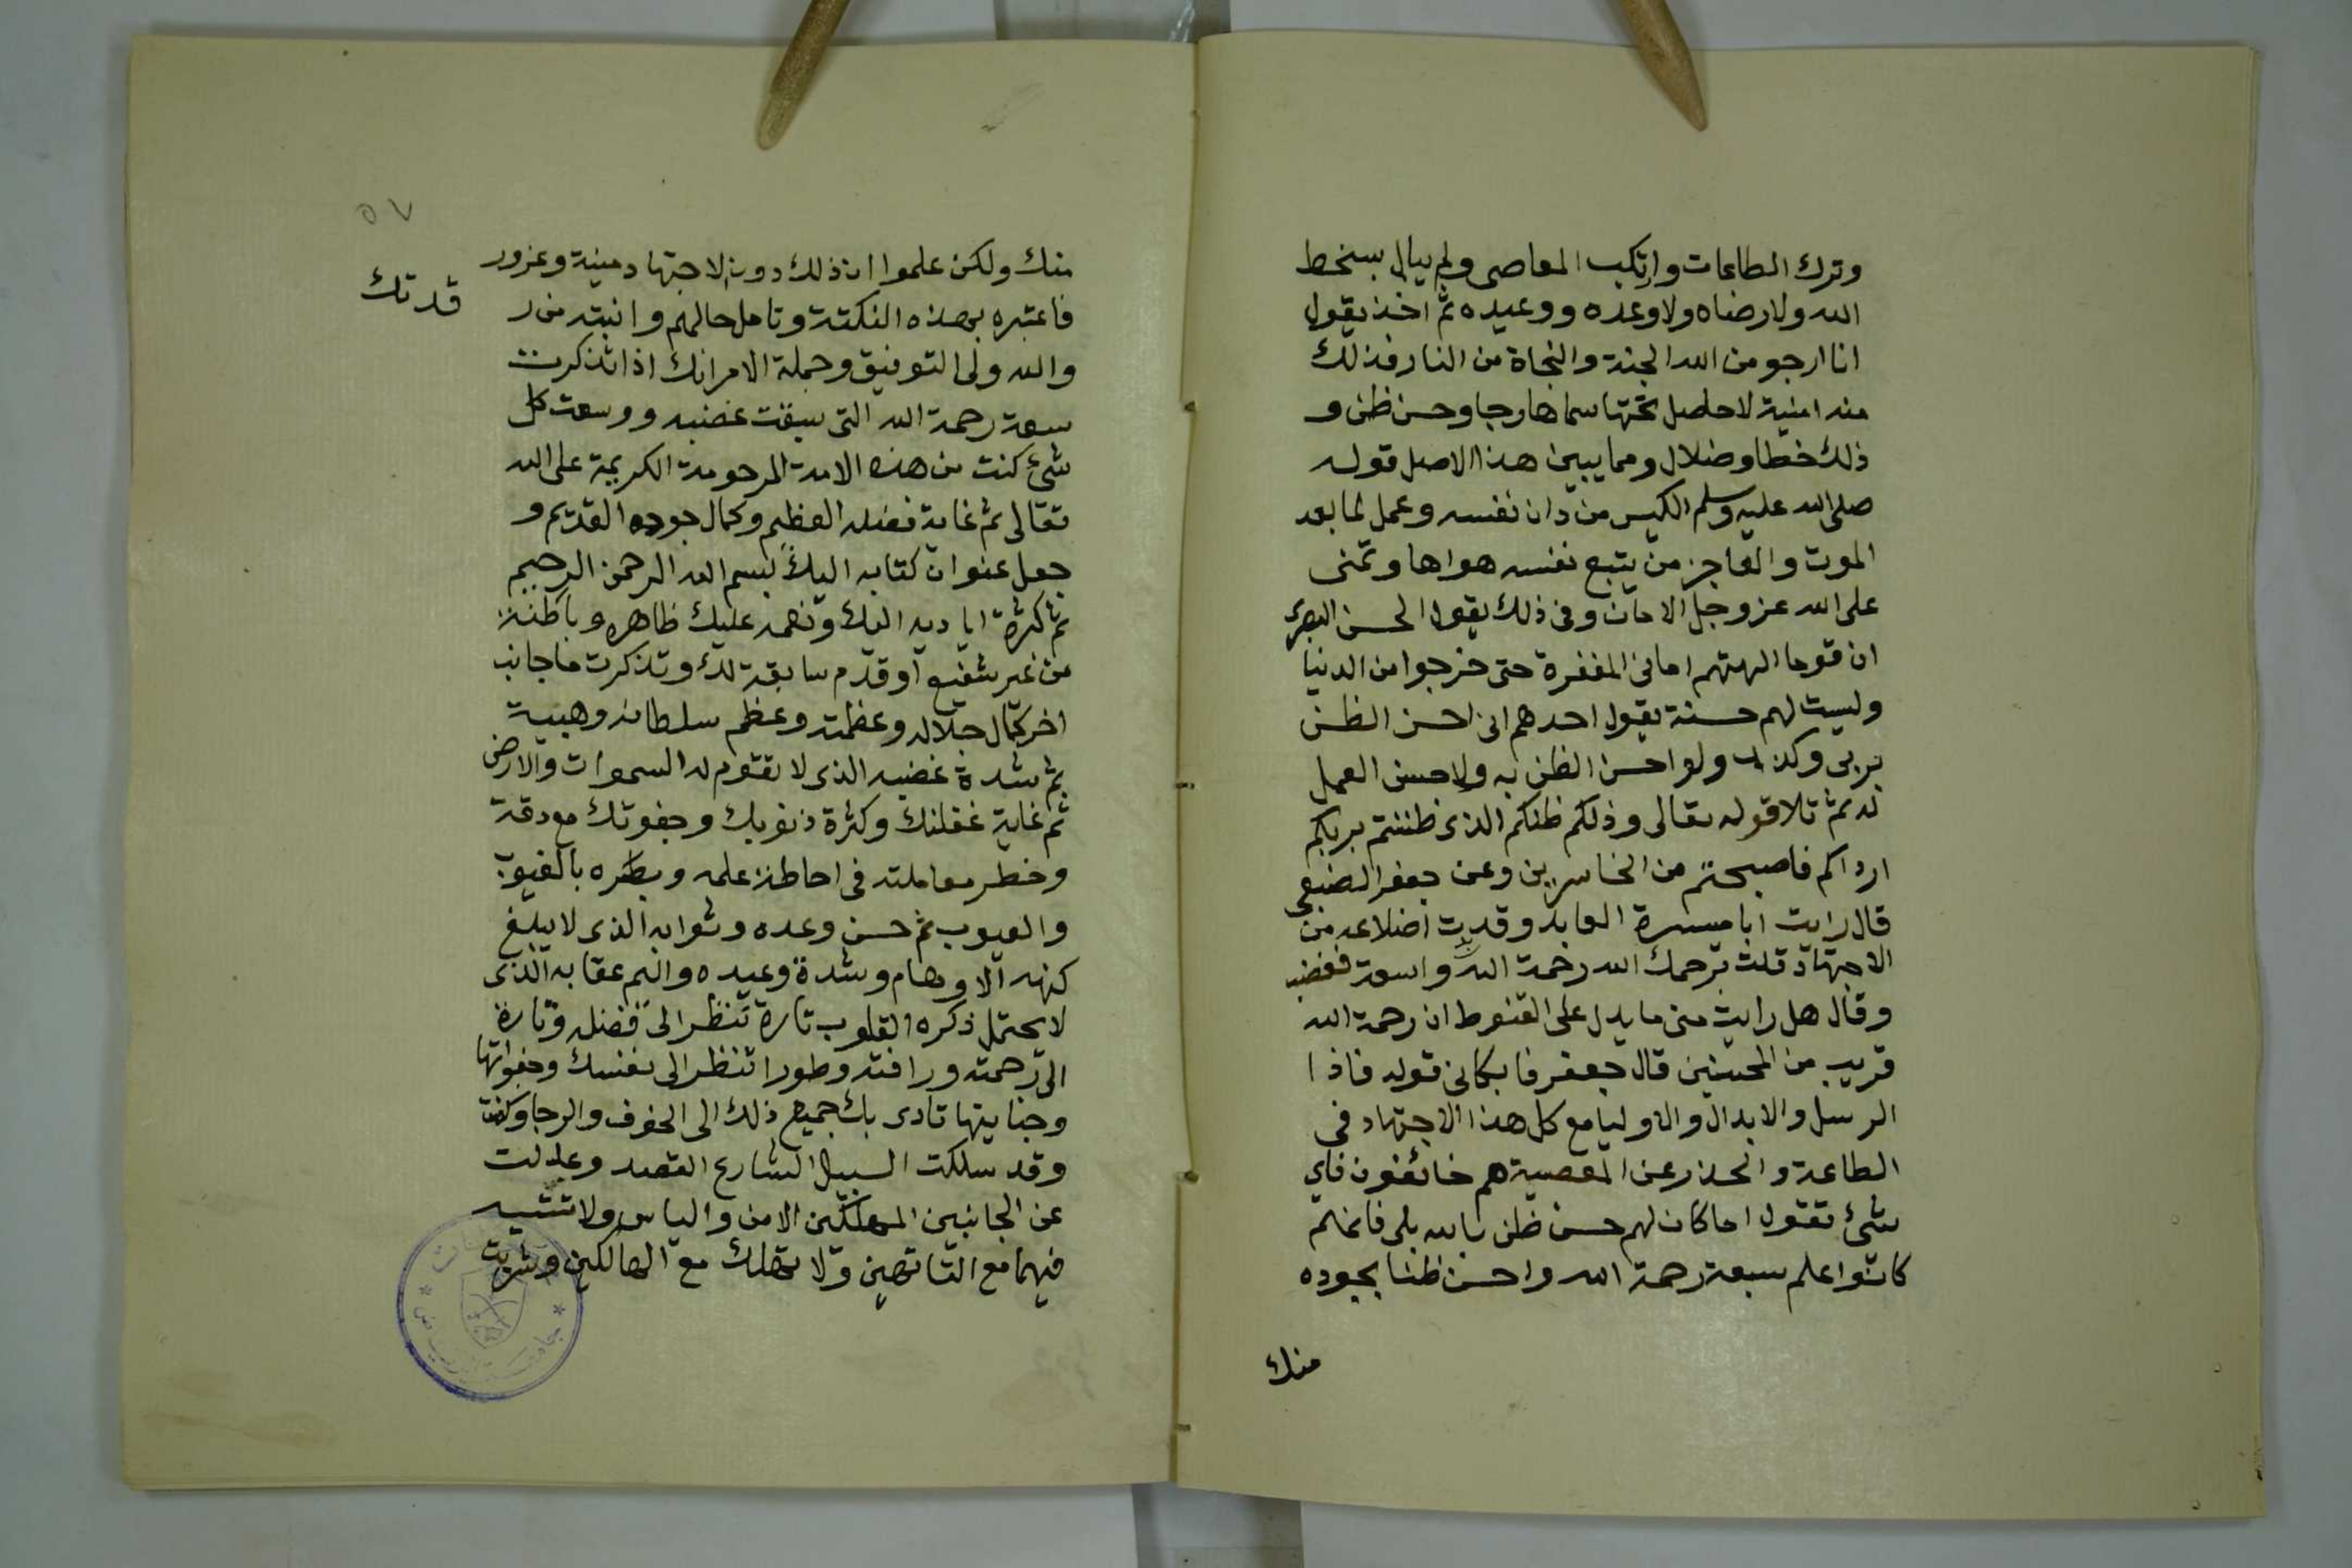 وترك الطاعات وارتكب المعاصى ولم يبالى بسخط
الله ولا رضاه ولا وعده ووعيده ثم اخذ يقول
انا ارجو من الله الجنة والنجاة من النار فذلك
منه امنية لا حاصل تحتها سماها رجا وحسن ظن و
ذلك خطا وضلال ومما يبين هذا الاصل قوله
صلى الله عليه وسلم الكيس من دان نفسه وعمل لما بعد
الموت والعاجز من يتبع نفسه هواها وتمنى
على الله عز وجل الامان وفى ذلك يقول الحسن البصرى
ان قوما الهتهم امانى المغفرة حتى خرجوا من الدنيا
وليست لهم حسنة يقول احدهم انى احسن الظن
بربى وكذب ولو احسن الظن به ولا حسن العمل
له ثم تلا قوله تعالى وذلكم ظنكم الذى ظننتم بربكم
ارداكم فاصبحتم من الخاسرين وعن جعفر الضبعى
قال رايت ابا ميسرة العابد وقد بدت اضلاعه من
الاجتهاد قلت يرحمك الله رحمة الله واسعة فغضب
وقال هل رايت منى ما يدل على القنوط ان رحمة الله
قريب من المحسنين قال جعفر فابكانى قوله فاذا
الرسل والابدال والاوليا مع كل هذا الاجتهاد فى
الطاعة والحذر عن المعصية هم خائفون فاي
شئ تقول اما كان لهم حسن ظن بالله بلى فانهم
كانوا اعلم بسعة رحمة الله واحسن ظنا بجوده
منك
٥٧
منك ولكن علموا ان ذلك دون الاجتهاد منية وغرور
فاعتبره بهذه النكتة وتامل حالهم وانتبه من ر
قدتك
والله ولى التوفيق وجملة الامر انك اذا تذكرت
سعة رحمة الله التى سبقت غضبه ووسعت كل
شئ كنت من هذه الامة المرحومة الكريمة على الله
تعالى ثم غاية فضله العظيم وكمال جوده القديم و
جعل عنوان كتابه اليك بسم الله الرحمن الرحيم
ثم كثرة اياديه اليك ونعمه عليك ظاهره وباطنة
من غير شفيع او قدم سابقة لك وتذكرت ما جانب
اخر كمال جلاله وعظمته وعظم سلطانه وهيبة
ثم شدة غضبه الذى لا تقوم له السموات والارض
ثم غاية غفلتك وكثرة ذنوبك وجفوتك مع دقة
وخطر معاملته فى احاطة علمه وبصره بالغيوب
والعيوب ثم حسن وعده وثوابه الذى لا يبلغ
كنهه الاوهام وشدة وعيده واليم عقابه الذى
لا يحتمل ذكره القلوب تارة تنظر الى فضله وتارة
الى رحمته ورافته وطورا تنظر الى نفسك وجفواتها
وجنايتها تادى بك جميع ذلك الى الخوف والرجا وكنت
وقد سلكت السبيل الشارع القصد وعدلت
عن الجانبين المهلكين الامن والياس ولا تتيه
فيهما مع التائهين ولا تهلك مع الهالكين وشربت